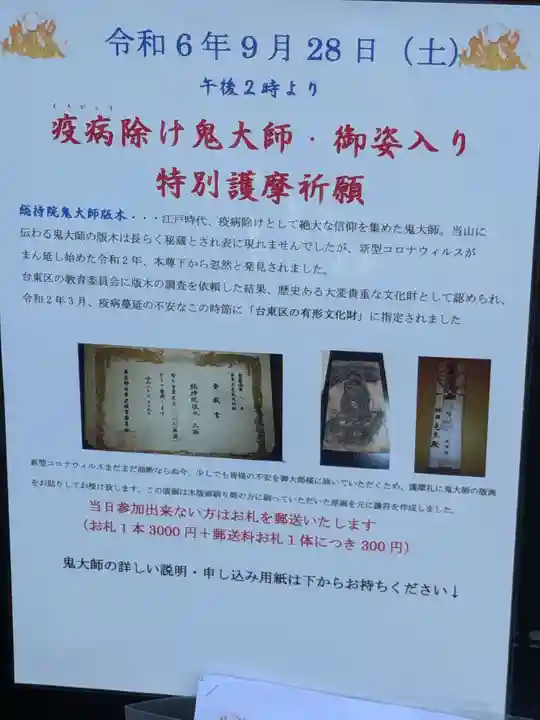 令和6年9月28日(土)
午後2時より
えきびょう
疫病除け鬼大師・御姿入り
特別護摩祈願
総持院鬼大師版木・・・江戸時代、疫病除けとして絶大な信仰を集めた鬼大師。当山に
伝わる鬼大師の版木は長らく秘蔵とされ表に現れませんでしたが、新型コロナウィルスが
まん延し始めた令和2年、本尊下から忽然と発見されました。
台東区の教育委員会に版木の調査を依頼した結果、歴史ある大変貴重な文化財として認められ、
令和2年3月、疫病蔓延の不安なこの時節に「台東区の有形文化財」に指定されました
登載書
新型コロナウィルスまだまだ油断ならぬ今、少しでも皆様の不安を御大師様に除いていただくため、護摩札に鬼大師の版画
をお貼りしてお授け致します。この版画は木版画刷り師の方に刷っていただいた原画を元に護符を作成しました。
当日参加出来ない方はお札を郵送いたします
(お札1本3000円+郵送料お札1体につき300円)
鬼大師の詳しい説明・申し込み用紙は下からお持ちください↓